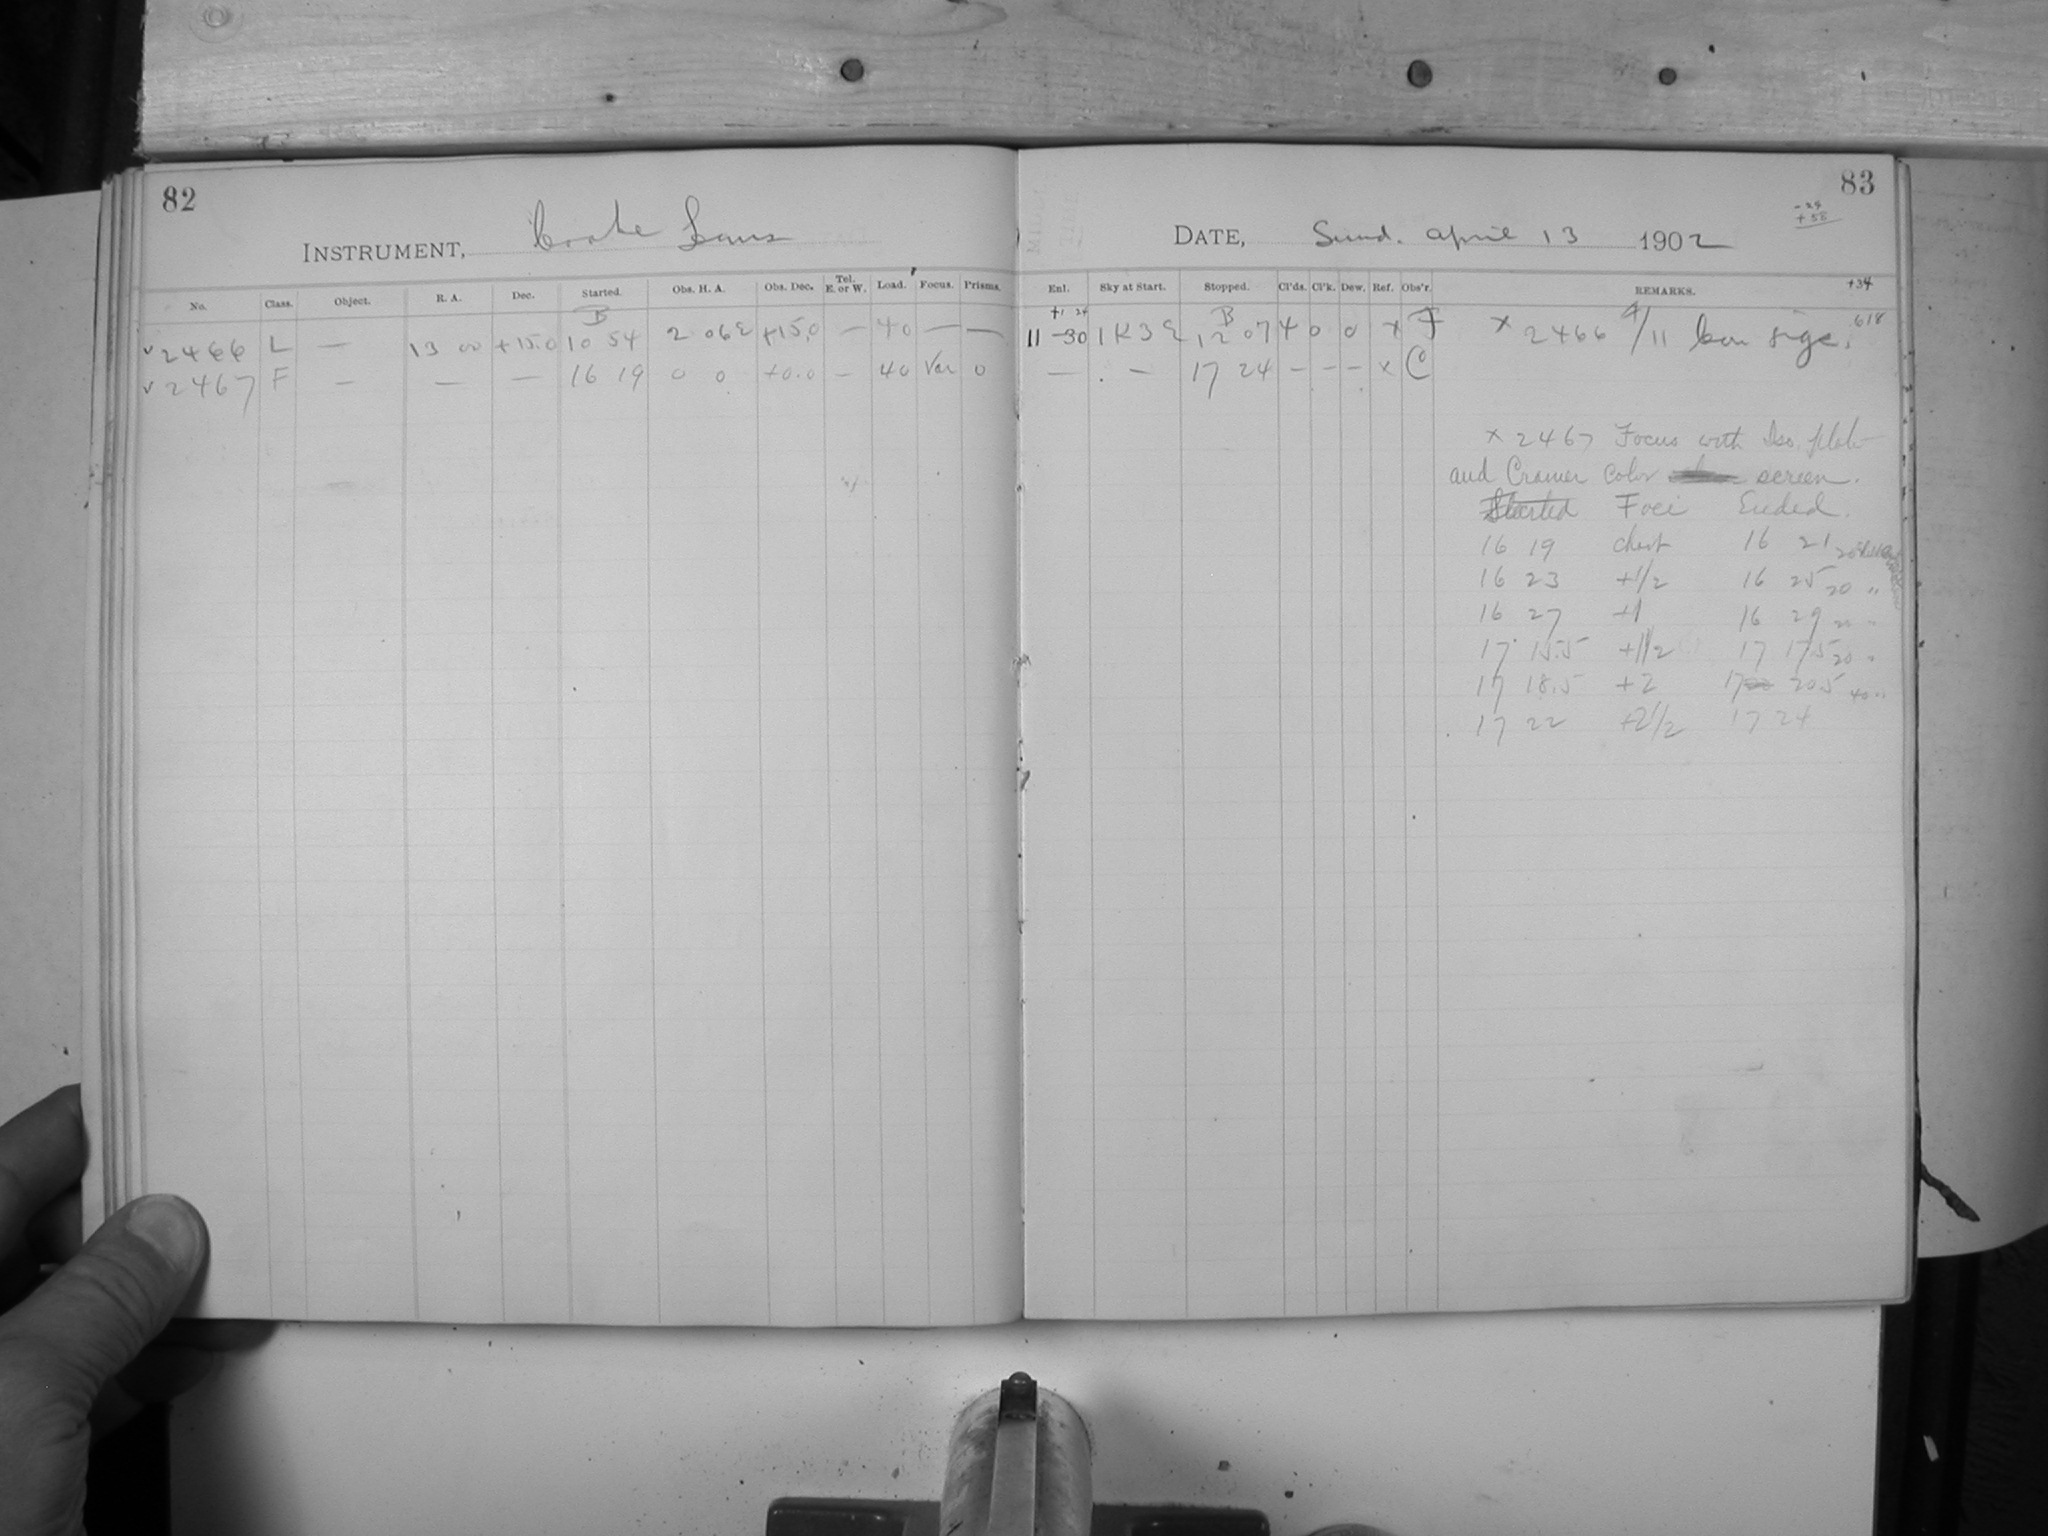 82
INSTRUMENT, Cooke Lens
No. Class. Object. R. A. Dec. Started. Obs. H. A. Obs. Dec. Tel. E. or W. Load. Focus. Prisms.
B
v 2466 L — 13 00 +15.0 10 54 2 06 E +15.0 — 40 — —
v 2467 F — — — 16 19 0 0 +0.0 — 40 Var 0
83
-24
+58
DATE, Sund. April 13 1902
+34
Enl. Sky at Start. Stopped. Cl'ds. Cl'k. Dew. Ref. Obs'r. REMARKS.
+1 24 B
11 -30 1K3E 12 07 4 0 0 x F x 2466 4/11 Com sige. 618
— — 17 24 — — — x C
x 2467 Focus with Iso. plate
and Cramer Color screen.
Started Foci Ended.
16 19 chart 16 21 20
16 23 +1/2 16 25 20 "
16 27 +1 16 29 20 "
17 15.5 +1 1/2 17 17.5 20 "
17 18.5 +2 17 20.5 40 "
17 22 +2 1/2 17 24